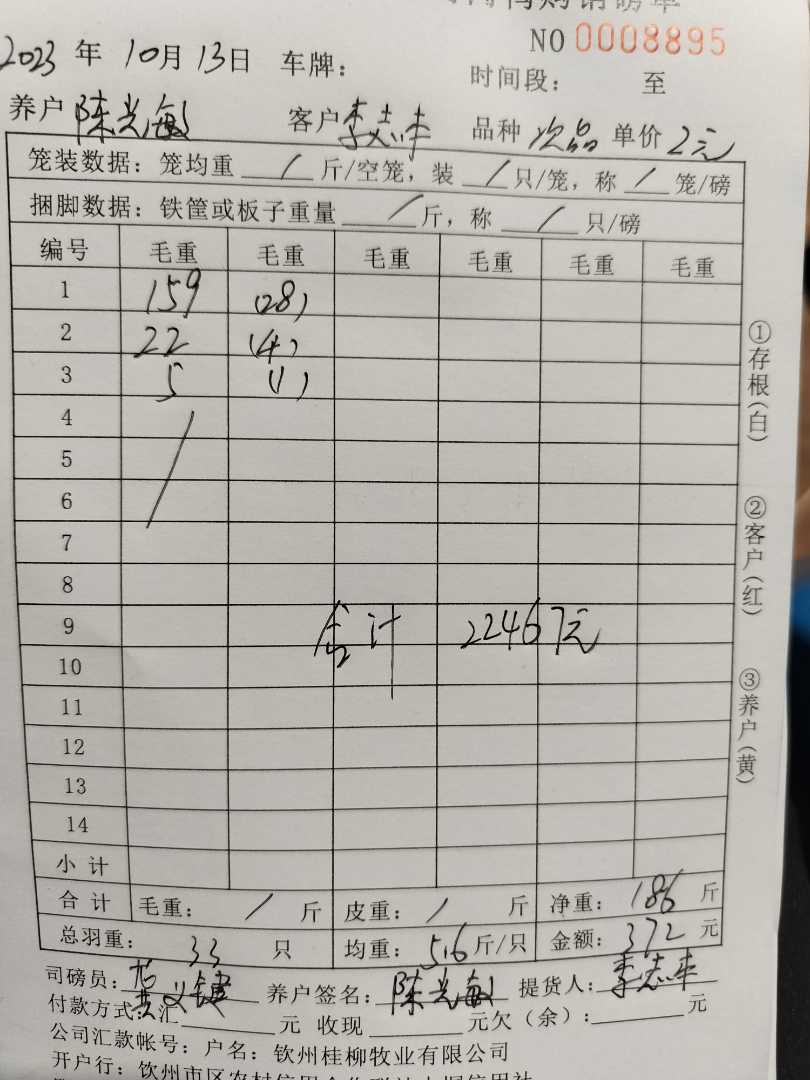 购销磅单
NO 0008895
2023 年 10月 13日 车牌: 时间段: 至
养户 陈光敏 客户 李志丰 品种 次品 单价 2元
笼装数据: 笼均重 / 斤/空笼, 装 / 只/笼, 称 / 笼/磅
捆脚数据: 铁筐或板子重量 / 斤, 称 / 只/磅
编号 毛重 毛重 毛重 毛重 毛重 毛重
1 159 (28)
2 22 (4)
3 5 (1)
4
5
6
7
8
9 合计 22467元
10
11
12
13
14
小计
合计 毛重: / 斤 皮重: / 斤 净重: 186 斤
总羽重: 33 只 均重: 5.6 斤/只 金额: 372 元
司磅员: 养户签名: 陈光敏 提货人: 李志丰
付款方式: 汇 元 收现 元欠(余): 元
公司汇款帐号: 户名: 钦州桂柳牧业有限公司
开户行: 钦州市区农村信用合作联社大垌信用社
①存根(白)
②客户(红)
③养户(黄)